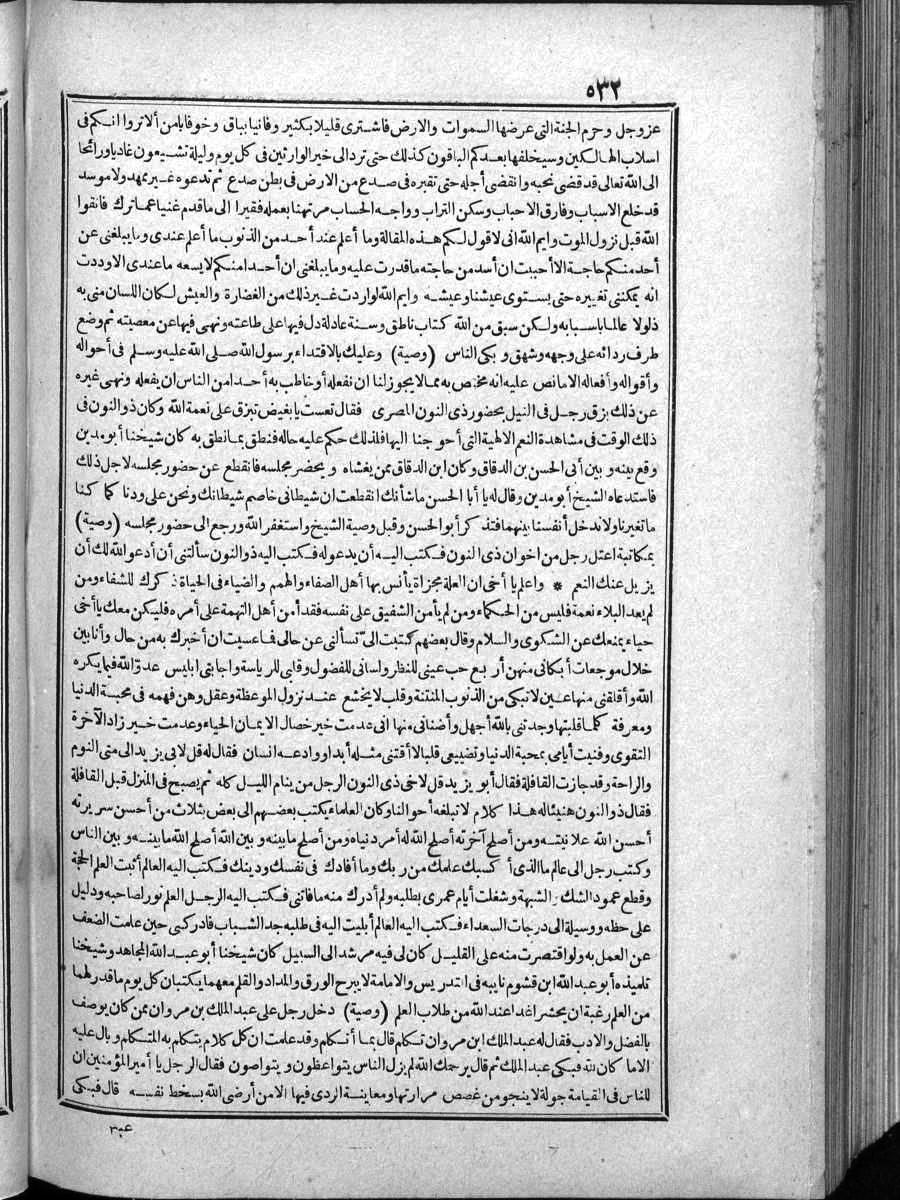 ٥٣٢
عز وجل وحرم الجنة التى عرضها السموات والارض فاشترى قليلا بكثير وفانيا بباق وخوفا بامن ألا تروا انكم فى
اسلاب الهالكين وسيخلفها بعدكم الباقون كذلك حتى ترد الى خير الوارثين فى كل يوم وليلة تشيعون غاديا ورائحا
الى الله تعالى قد قضى نحبه وانقضى أجله حتى تقبره فى صدع من الارض فى بطن صدع ثم تدعوه غير ممهد ولا موسد
قد خلع الاسباب وفارق الاحباب وسكن التراب وواجه الحساب مرتهنا بعمله فقيرا الى ما قدم غنيا عما ترك فاتقوا
الله قبل نزول الموت وايم الله انى لاقول لكم هذه المقالة وما أعلم عند أحد من الذنوب ما أعلم عندى وما يبلغنى عن
أحد منكم حاجة الا أحببت ان أسد من حاجته ما قدرت عليه وما يبلغنى ان أحدا منكم لا يسعه ما عندى الا وددت
انه يمكننى تغييره حتى يستوى عيشنا وعيشه وايم الله لو اردت غير ذلك من الغضارة والعيش لكان اللسان منى به
ذلولا عالما باسبابه ولكن سبق من الله كتاب ناطق وسنة عادلة دل فيها على طاعته ونهى فيها عن معصيته ثم وضع
طرف ردائه على وجهه وشهق وبكى الناس (وصية) وعليك بالاقتداء برسول الله صلى الله عليه وسلم فى أحواله
وأقواله وأفعاله الا ما نص عليه انه مختص به مما لا يجوز لنا ان نفعله أو خاطب به أحدا من الناس ان يفعله ونهى غيره
عن ذلك بزق رجل فى النيل بحضور ذى النون المصرى فقال تعست يا بغيض تبزق على نعمة الله وكان ذو النون فى
ذلك الوقت فى مشاهدة النعم الالهية التى أحوجنا اليها فلذلك حكم عليه حاله فنطق بما نطق به كان شيخنا أبو مدين
وقع بينه وبين أبى الحسن بن الدقاق وكان ابن الدقاق ممن يغشاه ويحضر مجلسه فانقطع عن حضور مجلسه لاجل ذلك
فاستدعاه الشيخ أبو مدين وقال له يا أبا الحسن ما شأنك انقطعت ان شيطانى خاصم شيطانك ونحن على ودنا كما كنا
ما تغيرنا ولا ندخل أنفسنا بينهما فتذكر أبو الحسن وقبل وصية الشيخ واستغفر الله ورجع الى حضور مجلسه (وصية)
بمكاتبة اعتل رجل من اخوان ذى النون فكتب اليه أن يدعو له فكتب اليه ذو النون سألتنى أن أدعو الله لك أن
يزيل عنك النعم * واعلم يا أخى ان العلة مجزاة يأنس بها أهل الصفاء والهمم والضياء فى الحياة ذكرك للشفاء ومن
لم يعد البلاء نعمة فليس من الحكماء ومن لم يأمن الشفيق على نفسه فقد أمن أهل التهمة على أمره فليكن معك يا أخى
حياء يمنعك عن الشكوى والسلام وقال بعضهم كتبت الىّ تسألنى عن حالى فما عسيت ان أخبرك به من حال وأنا بين
خلال موجعات أبكانى منهن أربع حب عينى للنظر ولسانى للفضول وقلبى للرياسة واجابتى ابليس عدوّ الله فيما يكره
الله وأقلقنى منها عين لا تبكى من الذنوب المنتنة وقلب لا يخشع عند نزول الموعظة وعقل وهن فهمه فى محبسة الدنيا
ومعرفة كلما قلبتها وجدتنى بالله أجهل وأضنانى منها انى عدمت خير خصال الايمان الحياء وعدمت خير زاد الآخرة
التقوى وفنيت أيامى بمحبة الدنيا وتضييعى قلبا لا أقتنى مثله أبدا وودعه انسان فقال له قل لابى يزيد الى متى النوم
والراحة وقد جازت القافلة فقال أبو يزيد قل لاخى ذى النون الرجل من ينام الليل كله ثم يصبح فى المنزل قبل القافلة
فقال ذو النون هنيئا له هذا كلام لا تبلغه أحوالنا وكان العلماء يكتب بعضهم الى بعض بثلاث من أحسن سريرته
أحسن الله علانيته ومن أصلح آخرته أصلح الله له أمر دنياه ومن أصلح ما بينه وبين الله أصلح الله ما بينه وبين الناس
وكتب رجل الى عالم ما الذى أكسبك علمك من ربك وما أفادك فى نفسك ودينك فكتب اليه العالم أثبت العلم الحجة
وقطع عمود الشك والشبهة وشغلت أيام عمرى بطلبه ولم أدرك منه ما فاتنى فكتب اليه الرجل العلم نور لصاحبه ودليل
على حظه ووسيلة الى درجات السعداء فكتب اليه العالم أبليت اليه فى طلبه جد الشباب فادركنى حين علمت الضعف
عن العمل به ولو اقتصرت منه على القليل كان لى فيه مرشد الى السبيل كان شيخنا أبو عبد الله المجاهد وشيخنا
تلميذه أبو عبد الله ابن قشوم نايبه فى التدريس والامامة لا يبرح الورق والمداد والقلم معهما يكتبان كل يوم ما قدر لهما
من العلم رغبة ان يحشر اغدا عند الله من طلاب العلم (وصية) دخل رجل على عبد الملك بن مروان ممن كان يوصف
بالفضل والادب فقال له عبد الملك ابن مروان تكلم قال بما أتكلم وقد علمت ان كل كلام يتكلم به المتكلم وبال عليه
الا ما كان لله فبكى عبد الملك ثم قال يرحمك الله لم يزل الناس يتواعظون ويتواصون فقال الرجل يا أمير المؤمنين ان
للناس فى القيامة جولة لا ينجو من غصص مرارتها ومعاينة الردى فيها الا من أرضى الله بسخط نفسه قال فبكى